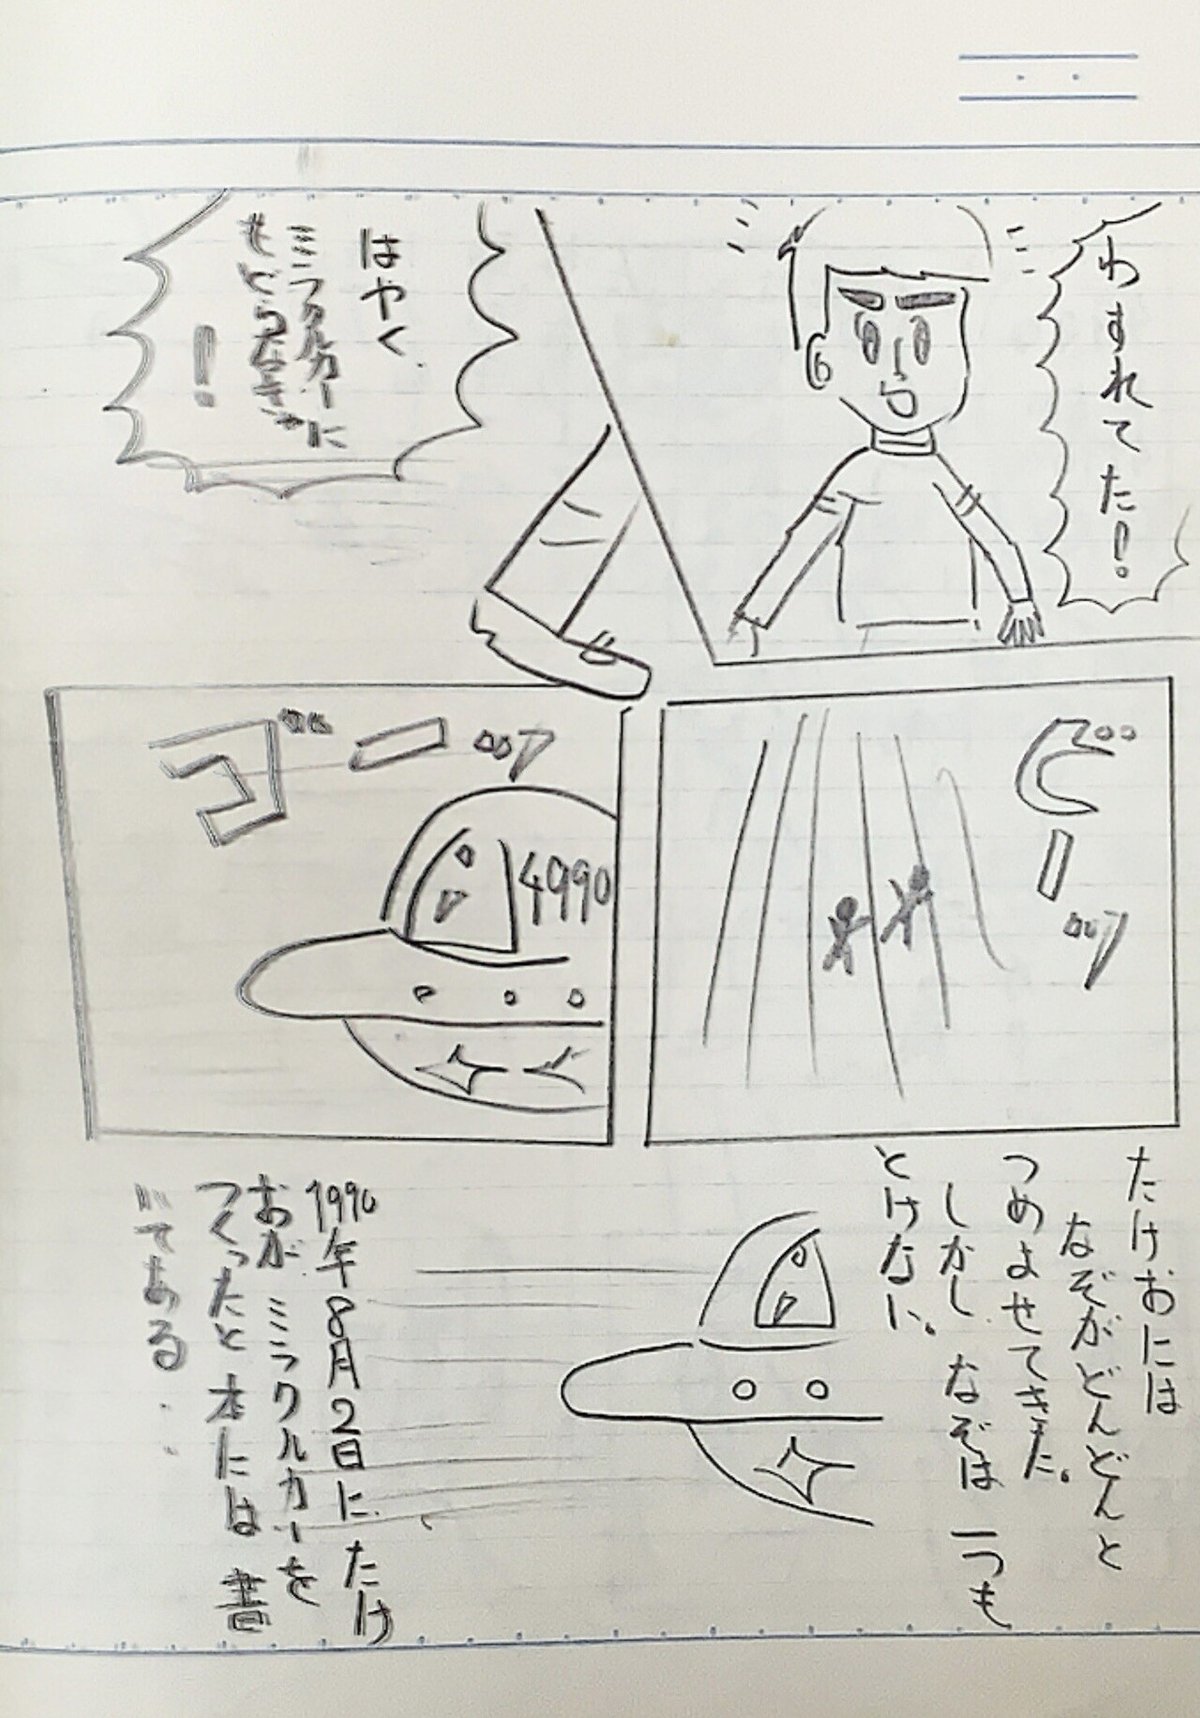 わすれてた！
はやく
ミラクルカーに
もどらなきゃ
！
ビーッ
4990
ゴーッ
たけおには
なぞがどんどんと
つめよせてきた。
しかし なぞは 一つも
とけない。
1990年8月2日に たけ
おが ミラクルカーを
つくったと 本には 書
いてある・・